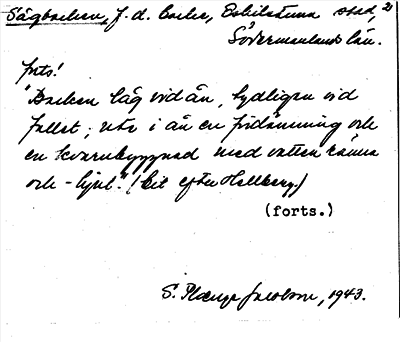 Sågbacken, f.d. backe, Eskilstuna stad, 2)
Södermanlands län.
forts!
"Backen låg vid ån, tydligen vid
fallet; ute i ån en fördämning och
en kvarnbyggnad med vattenränna
och -hjul." (Cit. efter Hellberg.)
(forts.)
S. Plænge Jacobson, 1943.